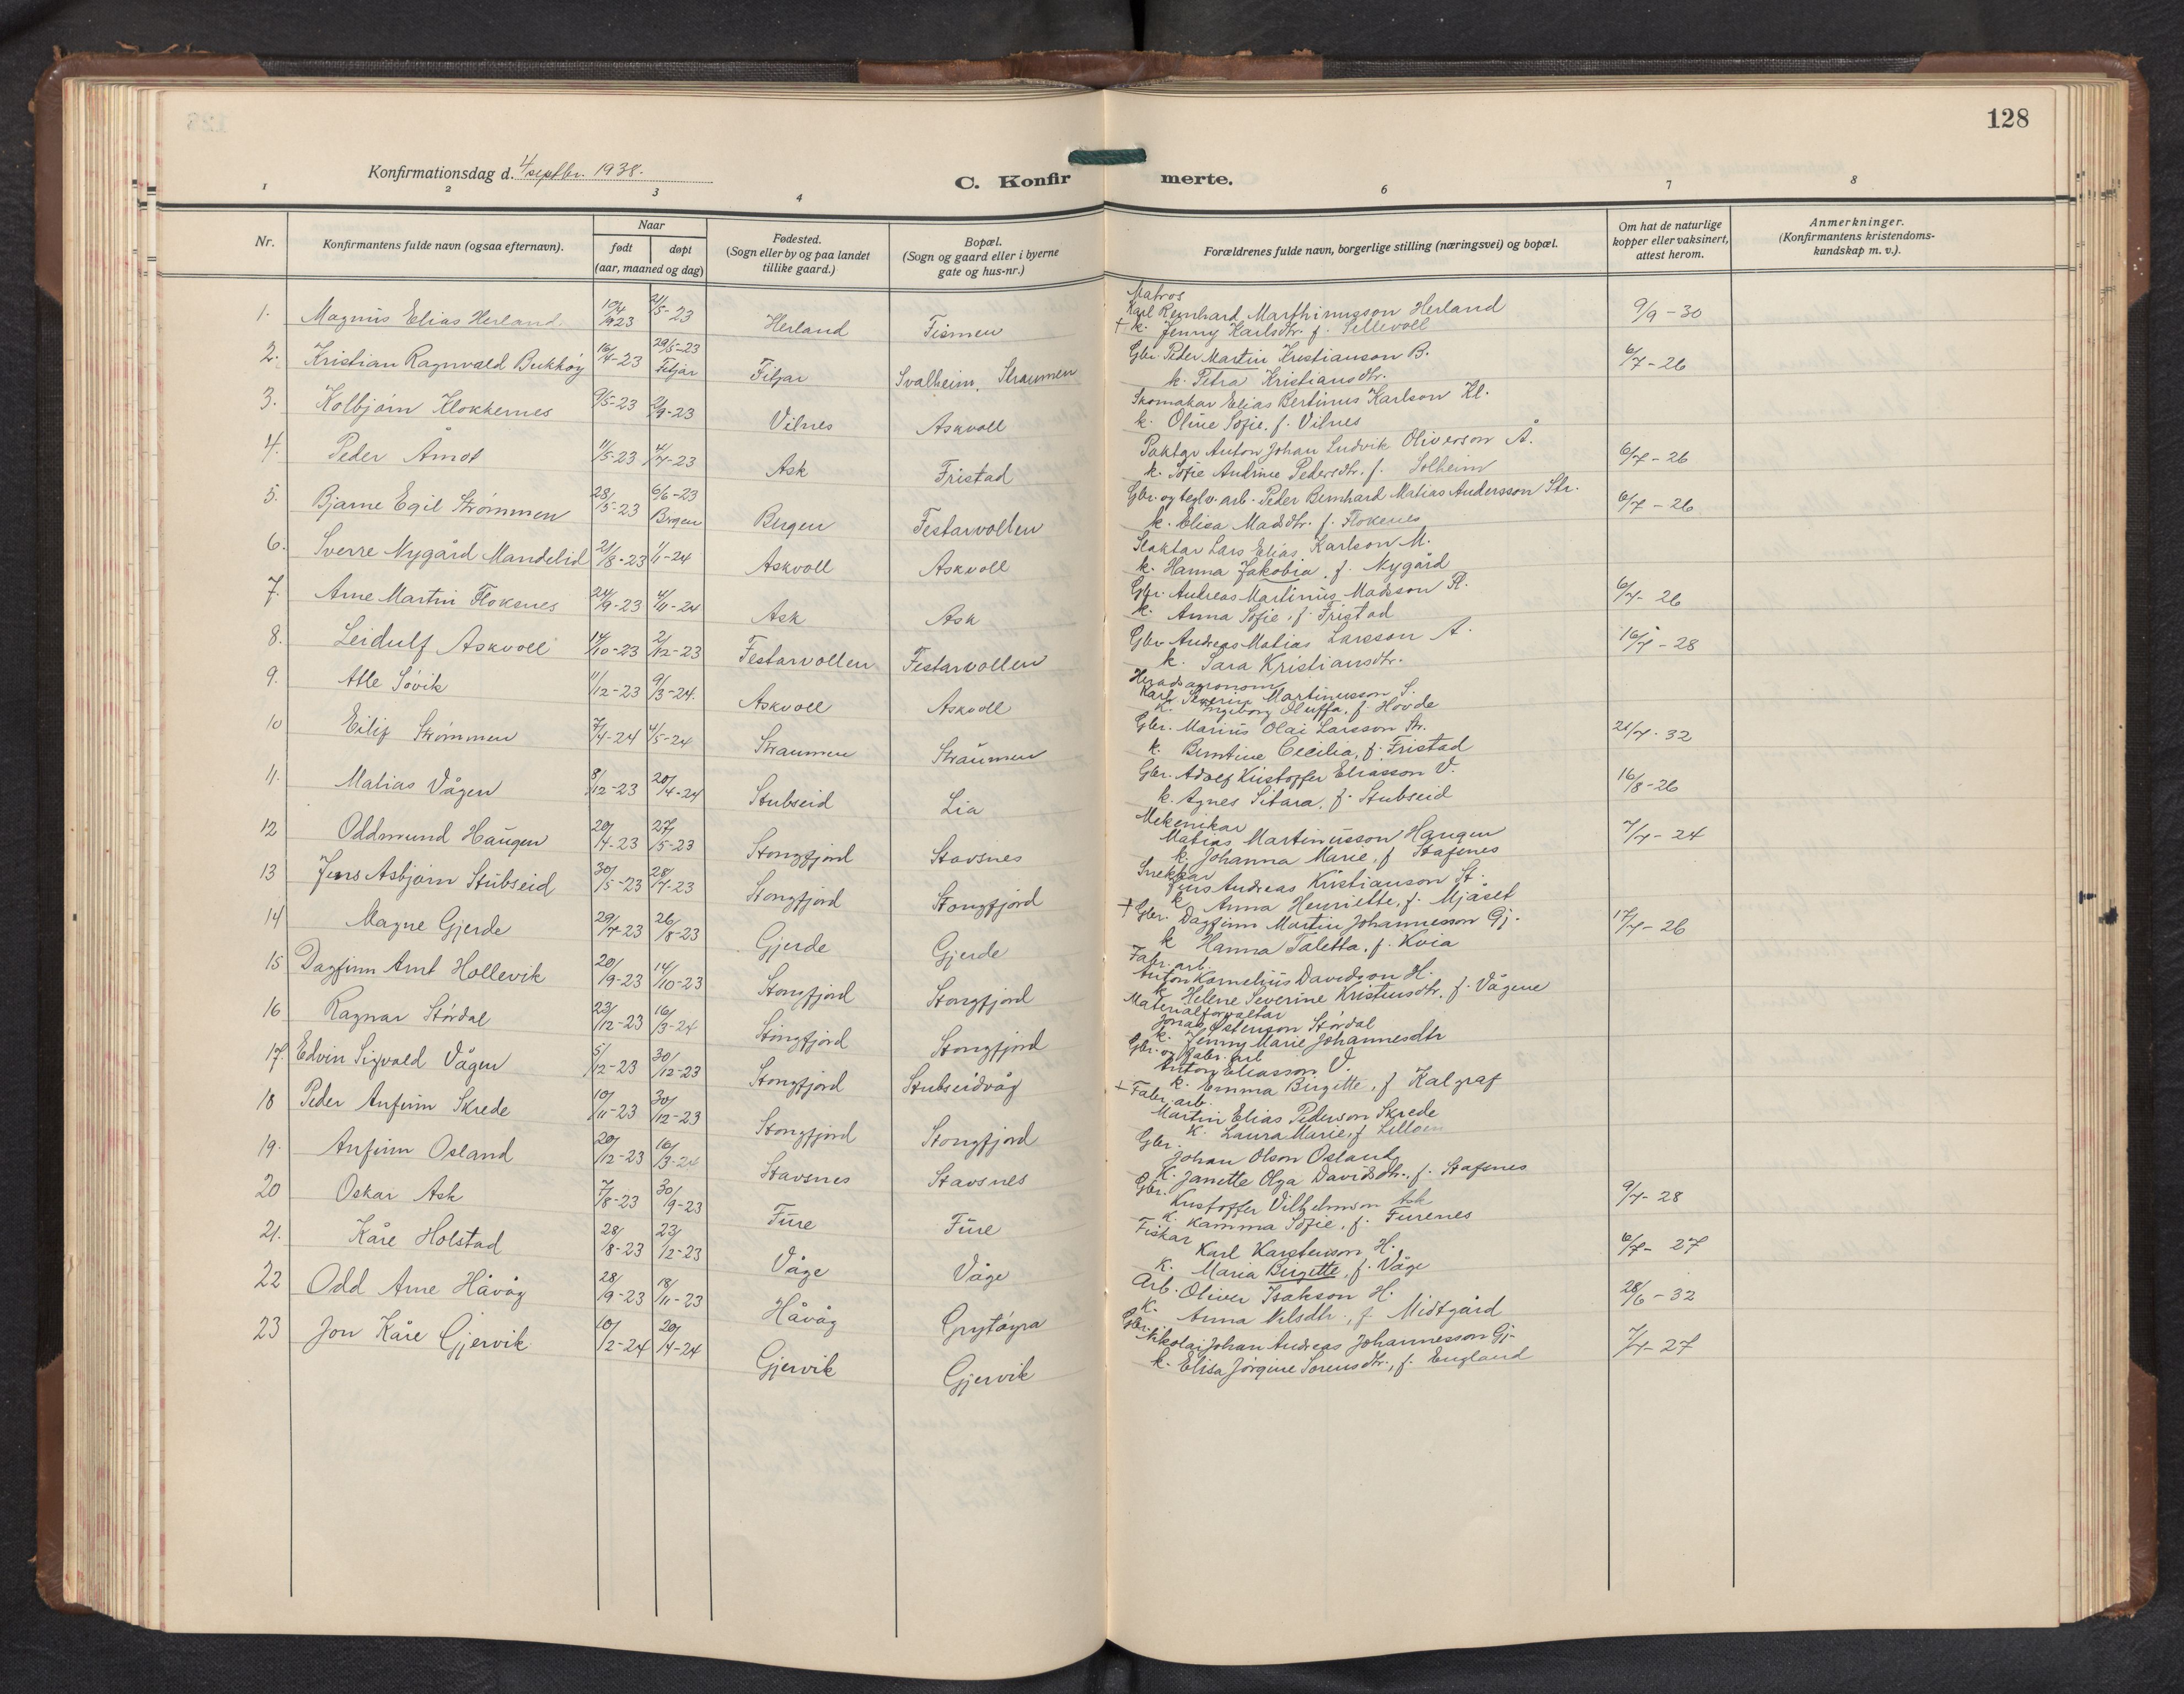 128
Konfirmationsdag d. 4 septbr. 1938.
C. Konfir merte.
1 2 3 4 6 7 8
Nr.
Konfirmantens fulde navn (ogsaa efternavn).
Naar
født døpt
(aar, maaned og dag)
Fødested.
(Sogn eller by og paa landet
tillike gaard.)
Bopæl.
(Sogn og gaard eller i byerne
gate og hus-nr.)
Forældrenes fulde navn, borgerlige stilling (næringsvei) og bopæl.
Om hat de naturlige
kopper eller vaksinert,
attest herom.
Anmerkninger.
(Konfirmantens kristendoms-
kundskap m. v.).
1. Magnus Elias Herland. 10/4 1923 21/5-23 Herland Fismen
Matros
Karl Reinhard Marthinusson Herland 9/9-30
+ k. Jenny Karlsdtr. f. Sellevoll
2. Kristian Ragnvald Bukkøy 16/4-23 29/5-23 Fitjar Fitjar Svalheim, Straumen
Gbr. Peder Martin Kristianson B. 6/7-26
k. Petra Kristiansdtr.
3. Kolbjørn Klokkernes 9/5-23 2/9-23 Vilnes Askvoll
Skomakar Elias Bertinus Karlson Kl.
k. Oline Sofie. f. Vilnes
4. Peder Åmot 11/5-23 4/7-23 Ask Fristad
Paktar Anton Johan Ludvik Oliverson Å. 6/7-26
k. Sofie Andrine Pedersdtr. f. Solheim
5. Bjarne Egil Strømmen 28/5-23 6/6-23 Brgen Bergen Festarvollen
Gbr. og teglv. arb. Peder Bernhard Matias Andersson Str. 6/7-26
k. Elisa Madsdtr. f. Flokenes
6. Sverre Nygård Mandelid 21/8-23 1/1-24 Askvoll Askvoll
Slaktar Lars Elias Karlson M.
k. Hanna Jakobia, f. Nygård
7. Arne Martin Flokenes 24/9-23 4/11-24 Ask Ask
Gbr. Andreas Martinus Madsson Fl. 6/7-26
k. Anna Sofie, f. Fristad
8. Leidulf Askvoll 14/10-23 2/12-23 Festarvollen Festarvollen
Gbr Andreas Matias Larsson A. 16/7-28
k. Sara Kristiansdtr.
9. Atle Søvik 11/12-23 9/3-24. Askvoll Askvoll
Heradsagronom
Karl Severin Martinusson S.
k. Ingeborg Oluffa, f. Hovde
10 Eilif Strømmen 7/4-24 4/5-24 Straumen Straumen
Gbr. Marius Olai Larsson Str. 21/7-32
k. Berntine Cecilia, f. Fristad
11. Matias Vågen 8/12-23 20/4-24 Stubseid Lia
Gbr. Adolf Kristoffer Eliasson V. 16/8-26
k. Agnes Sitara, f. Stubseid
12 Oddmund Haugen 20/4-23 27/5-23 Stongfjord Stavsnes
Mekenikar
Matias Martinusson Haugen 7/7-24
k. Johanna Marie, f Stafsnes
13 Jens Asbjørn Stubseid 30/5-23 28/7-23 Stongfjord Stongfjord
Snekkar
Jens Andreas Kristianson St.
k. Anna Henriette, f. Mjåset
14 Magne Gjerde 29/7-23 26/8-23 Gjerde Gjerde
+ Gbr. Dagfinn Martin Johannesson Gj. 17/7-26
k Hanna Taletta, f. Kvia
15 Dagfinn Arnt Hollevik 20/9-23 14/10-23 Stongfjord Stongfjord
Fabr. arb.
Anton Kornelius Davidson H.
k. Helene Severine Kristensdtr. f. Vågene
16 Ragnar Stórdal 23/12-23 16/3-24 Stongfjord Stongfjord
Materialforvaltar
Jonas Østenson Stórdal
k. Jenny Marie Johannesdtr
17. Edvin Sigvald Vågen 5/12-23 30/12-23 Stongfjord Stubseidvåg
Gbr. og fabr. arb
Anton Eliasson V.
k. Emma Birgitte, f Kalgraf
18 Peder Anfinn Skrede 10/11-23 30/12-23 Stongfjord Stongfjord
+ Fabr. arb.
Martin Elias Pederson Skrede
k. Laura Marie, f Lilloen
19. Anfinn Osland 20/12-23 16/3-24 Stavsnes Stavsnes
Gbr.
Johan Olson Osland
k. Janette Olga Davidsdtr., f. Stafsnes
20 Oskar Ask 7/8-23 30/9-23 Fure Fure
Gbr.
Kristoffer Vilhelmson Ask 9/7-28
k. Kamma Sofie, f. Furenes
21. Kåre Holstad 28/8-23 23/12-23 Våge Våge
Fiskar
Karl Karstenson H. 6/7-27
k. Maria Birgitte, f. Våge
22 Odd Arne Håvåg 28/9-23 18/11-23 Håvåg Grytøyra
Arb. Oliver Isakson H. 28/6-32
k. Anna Nilsdtr., f. Midtgård
23 Jon Kåre Gjervik 10/2-24 20/4-24 Gjervik Gjervik
Gbr. Nikolai Johan Andreas Johannesson Gj. 7/7-27
k. Elisa Jørgine Sorensdtr., f. England